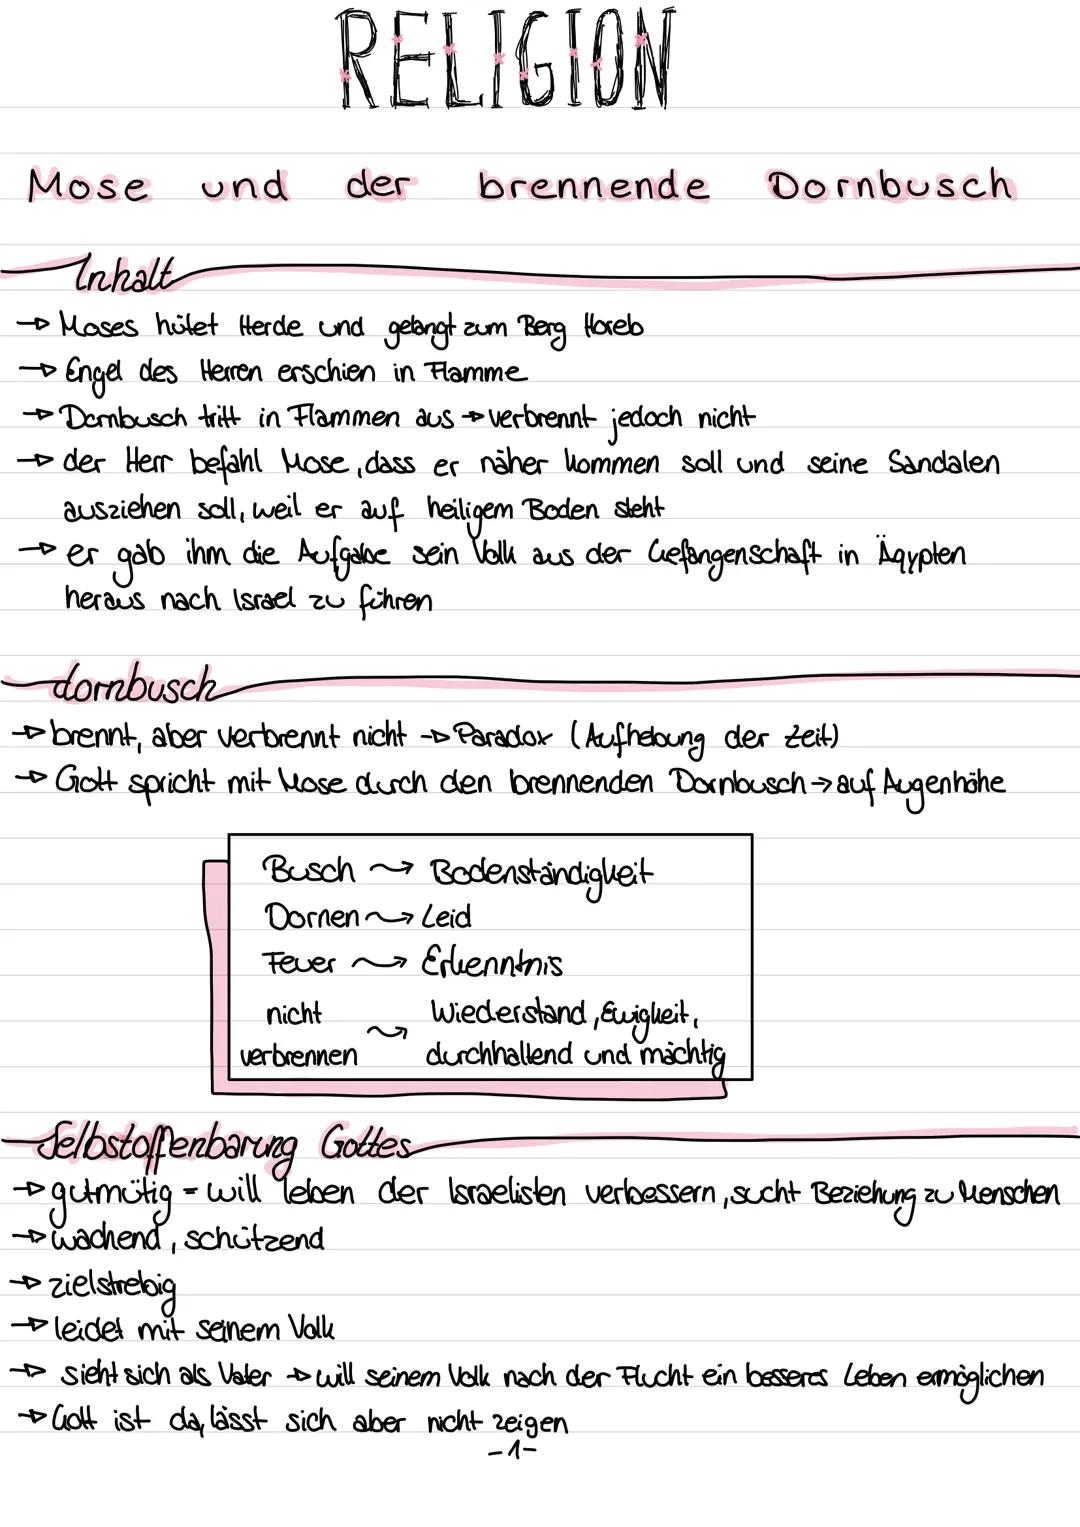 RELIGION
Mose und der brennende Dornbusch
Inhalt
→ Moses hütet Herde und gelangt zum Berg Horeb
→ Engel des Herren erschien in Flamme
→ Dornbusch tritt in Flammen aus → verbrennt jedoch nicht
→ der Herr befahl Mose, dass er näher kommen soll und seine Sandalen
ausziehen soll, weil er auf heiligem Boden steht
→ er gab ihm die Aufgabe sein Volk aus der Gefangenschaft in Ägypten
heraus nach Israel zu führen
dornbusch
→ brennt, aber verbrennt nicht → Paradox (Aufhebung der Zeit)
→ Gott spricht mit Mose durch den brennenden Dornbusch → auf Augenhöhe
Busch → Bodenständigkeit
Dornen → Leid
Feuer → Erkenntnis
nicht verbrennen → Wiederstand, Ewigkeit,
durchhaltend und mächtig
Selbstoffenbarung Gottes
→ gutmütig = will leben der Israelisten verbessern, sucht Beziehung zu Menschen
→ wachend, schützend
→ zielstrebig
→ leidet mit seinem Volk
→ sieht sich als Vater → will seinem Volk nach der Flucht ein besseres Leben ermöglichen
→ Gott ist da, lässt sich aber nicht zeigen
-1-